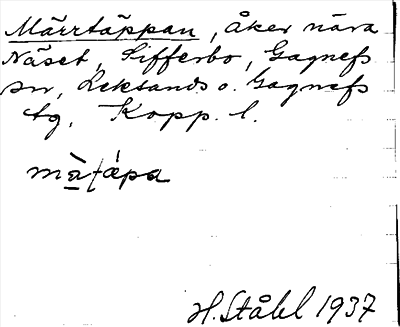 Märrtäppan, åker nära
Näset, Sifferbo, Gagnefs
sn, Leksands o. Gagnefs
tg, Kopp. l.
H. Ståhl 1937